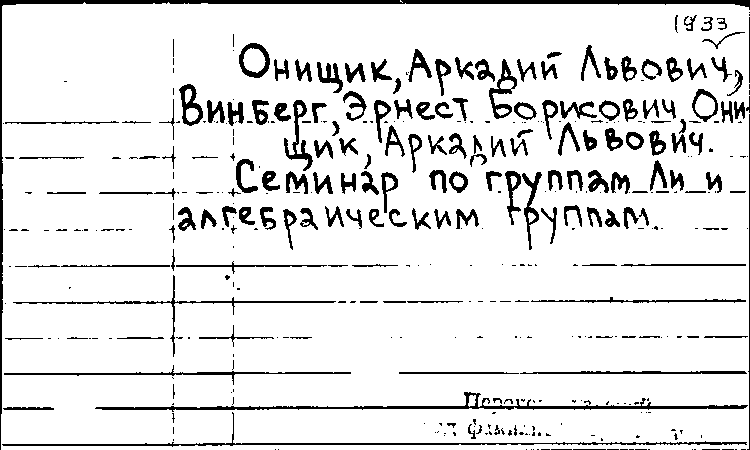 1933
Онищик, Аркадий Львович,
Винберг, Эрнест Борисович, Они-
щик, Аркадий Львович.
Семинар по группам Ли и
алгебраическим группам.